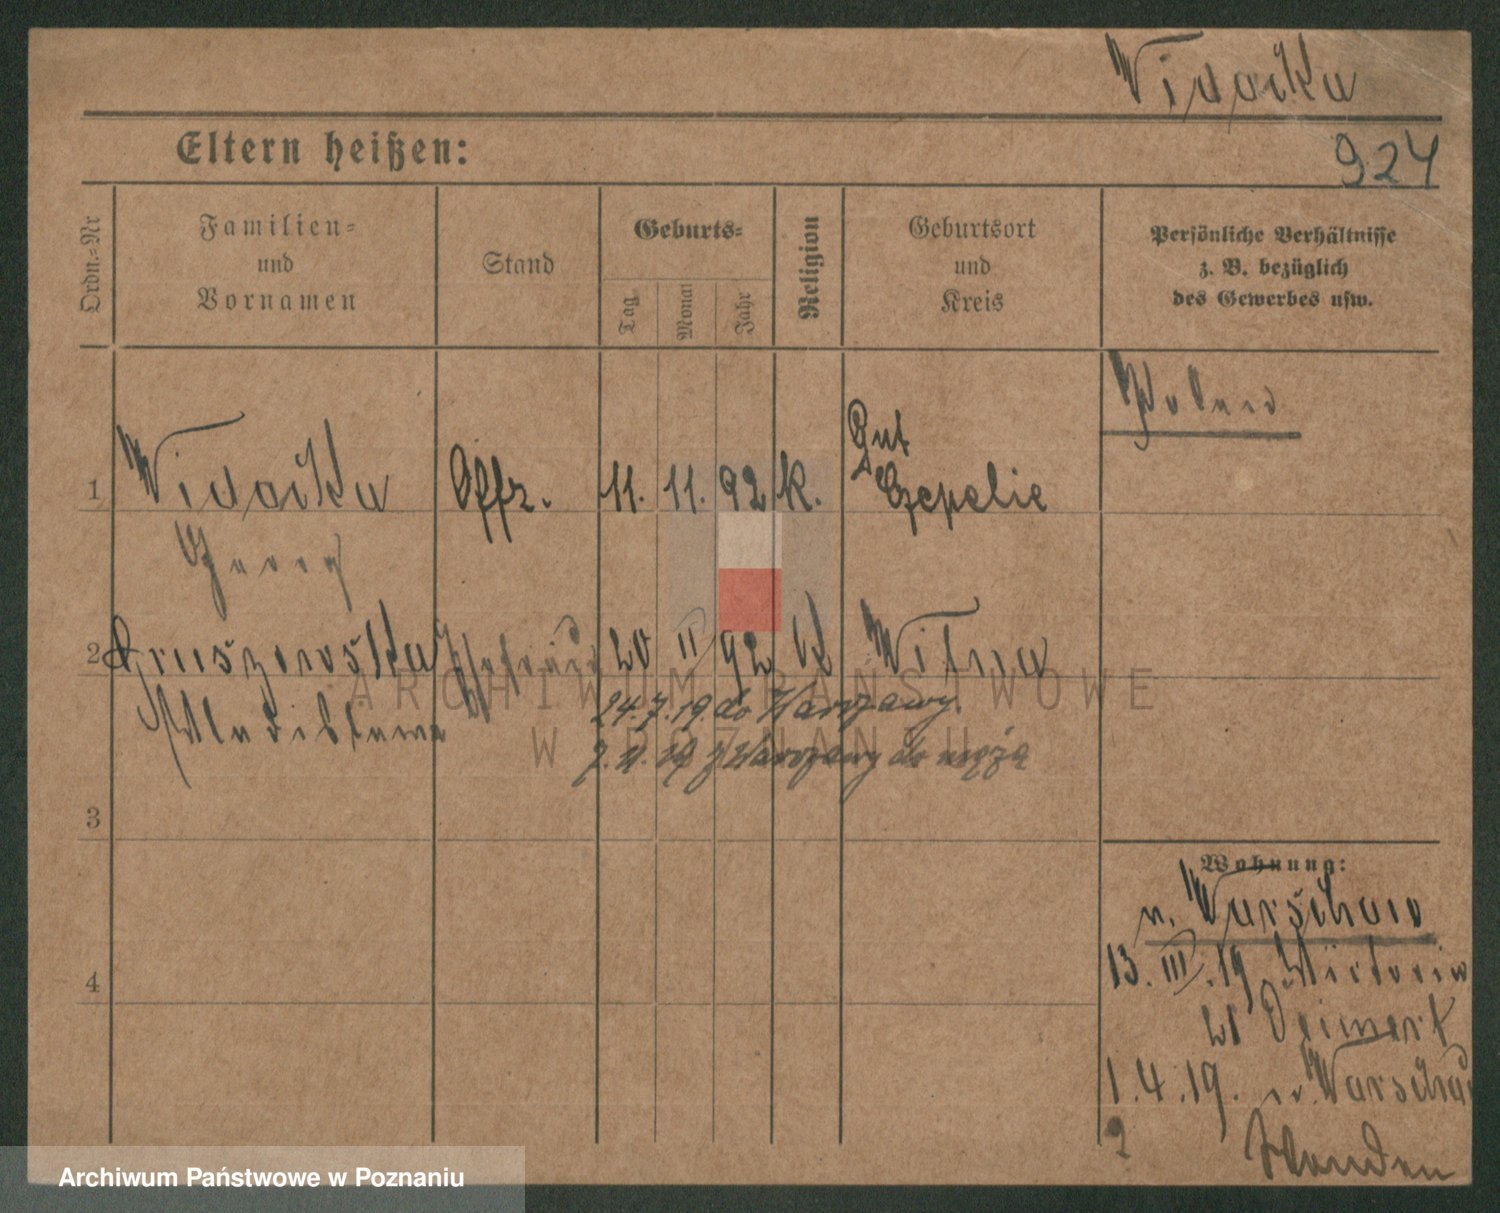 Widacka
924
Eltern heißen:
Ordn.-Nr
Familien-
und
Vornamen
Stand
Geburts-
Tag
Monat
Jahr
Religion
Geburtsort
und
Kreis
Persönliche Verhältnisse
z. B. bezüglich
des Gewerbes usw.
Gut
1 Offz. 11. 11. 92 k. Czepelie
Georg
2 Gruszewska 20 II 92 k Wilna
Wladislawa
24.7.19. do Warszawy.
z Warszawy do męża
3
Wohnung:
n. Warschau
13. III. 19 Wictoria
4
1.4.19. n. Warschau
ARCHIWUM PAŃSTWOWE
W POZNANIU
Archiwum Państwowe w Poznaniu